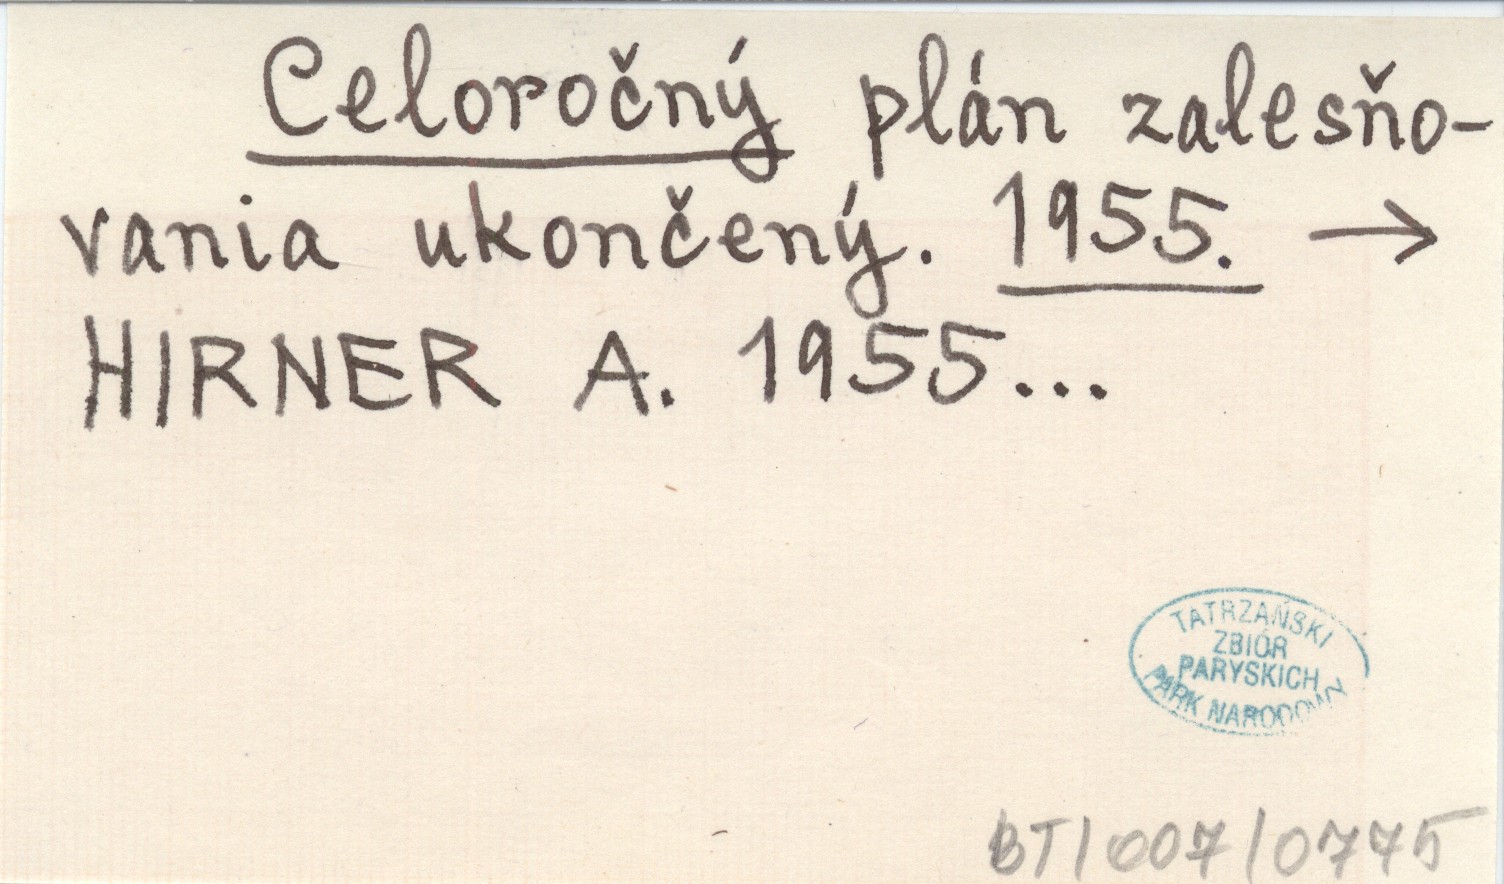 Celoročný plán zalesňo-
vania ukončený. 1955. →
HIRNER A. 1955...
TATRZAŃSKI
ZBIÓR
PARYSKICH
PARK NARODOWY
BT/007/0775